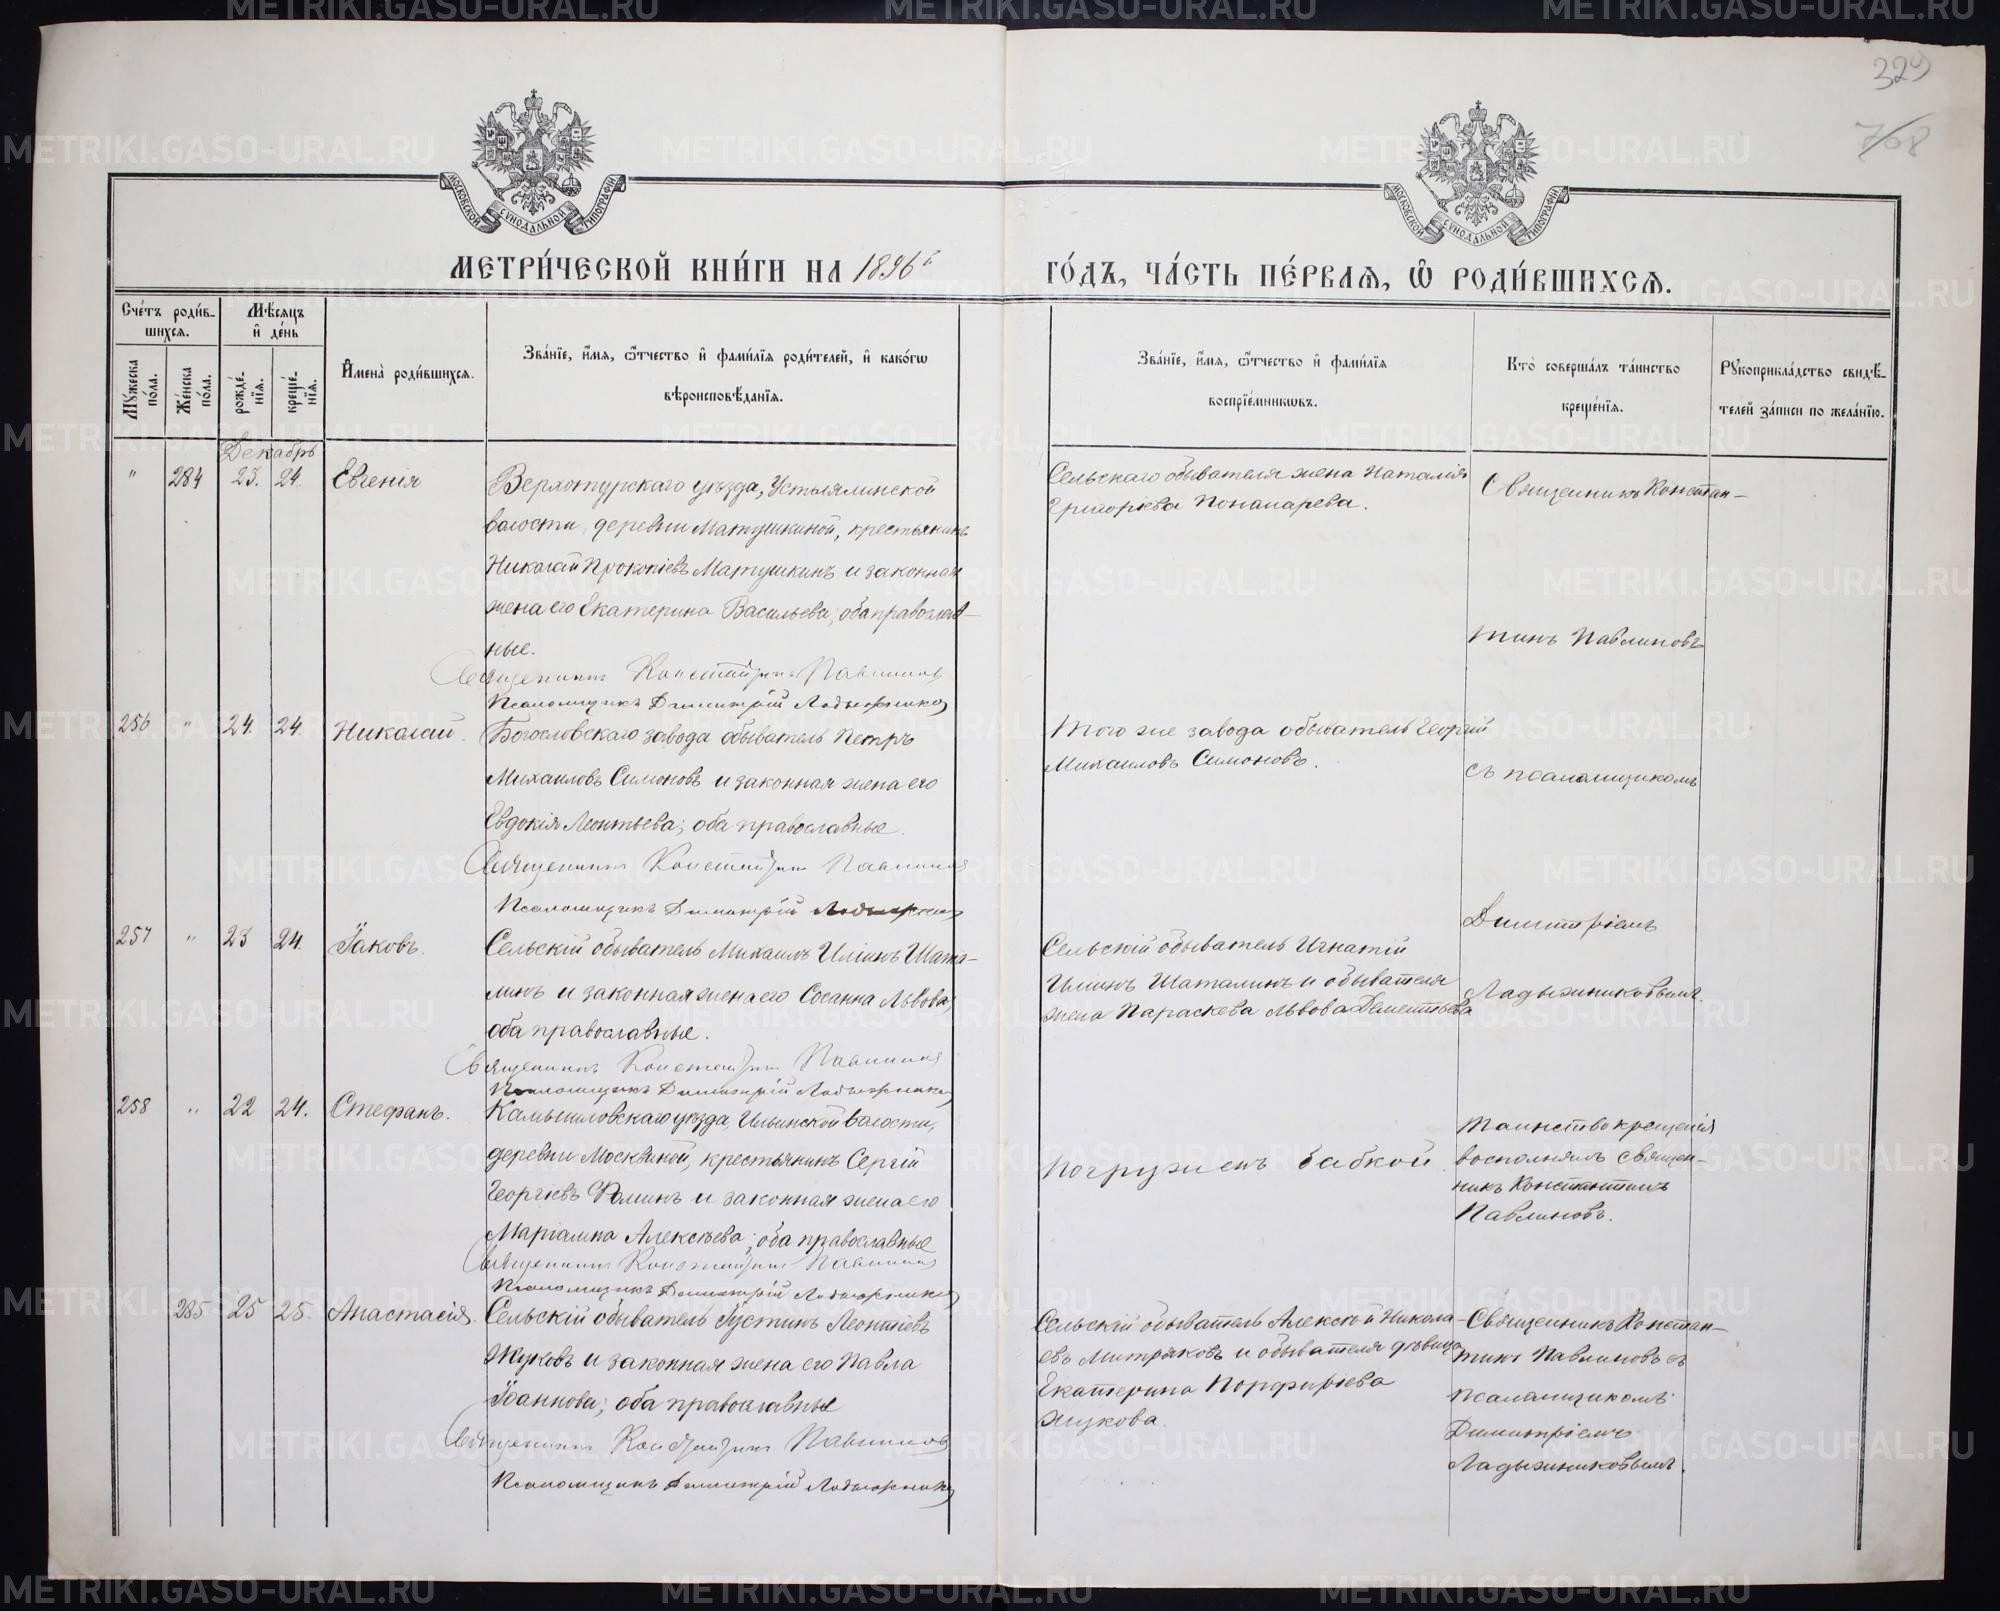 329
768
МОСКОВСКОЙ СѴНОДАЛЬНОЙ ТИПОГРАФІИ
МОСКОВСКОЙ СѴНОДАЛЬНОЙ ТИПОГРАФІИ
МЕТРИ́ЧЕСКОЙ КНИ́ГИ НА 1896й
ГО́ДЪ, ЧА́СТЬ ПЕ́РВАЯ, Ѽ РОДИ́ВШИХСЯ.
Сче́тъ роди́в-
шихся.
Мѣ́сяцъ
и҆ де́нь
Му́жеска по́ла.
Же́нска по́ла.
рожде́-
нїя.
креще́-
нїя.
И҆мена̀ роди́вшихся.
Зва́нїе, и҆́мя, ѻ҆́тчество и҆ фами́лїя роди́телей, и҆ како́гѡ
вѣроисповѣ́данїя.
Зва́нїе, и҆́мя, ѻ҆́тчество и҆ фами́лїя
воспрїе́мникѡвъ.
Кто̀ соверша́лъ та́инство
креще́нїя.
Рꙋкоприкла́дство свидѣ́-
телей за́писи по жела́нїю.
Декабрь
" 284 23. 24. Евгенія
Верхотурскаго уѣзда, Устлялинской
волости, деревни Матушкиной, крестьянинъ
Николай Прокопіевъ Матушкинъ и законная
жена его Екатерина Васильева; оба православ-
ные.
Священникъ Константинъ Павлинов
Псаломщикъ Димитрій Ладыжников
Сельскаго обывателя жена Наталія
Григоріева Пономарева.
Священникъ Констан-
тинъ Павлиновъ
256 " 24. 24. Николай.
Богословскаго завода обыватель Петръ
Михаиловъ Симоновъ и законная жена его
Евдокія Леонтьева; оба православные.
Священникъ Константин Павлинов
Псаломщикъ Димитрій Ладыжников
Того же завода обыватель Георгій
Михаиловъ Симоновъ.
съ псаломщикомъ
Димитріемъ
257 " 23 24. Іаковъ.
Сельскій обыватель Михаилъ Иліинъ Шата-
линъ и законная жена его Сосанна Львова,
оба православные.
Священникъ Константин Павлинов
Псаломщикъ Димитрій Ладыжников
Сельскій обыватель Игнатій
Илиинъ Шаталинъ и обывателя
жена Параскева Львова Дементьева
Ладыжниковымъ.
258 " 22 24. Стефанъ.
Камышловскаго уѣзда, Ильинской волости,
деревни Москвиной, крестьянинъ Сергій
Георгіевъ Фоминъ и законная жена его
Маріамна Алексѣева; оба православные
Священникъ Константин Павлинов
Псаломщикъ Димитрій Ладыжников
Погруженъ бабкой.
Таинство крещенія
восполнялъ священ-
никъ Константинъ
Павлиновъ.
285 25 25. Анастасія.
Сельскій обыватель Іустинъ Леонтіевъ
Жуковъ и законная жена его Павла
Іоаннова; оба православные
Священникъ Константин Павлинов
Псаломщикъ Димитрій Ладыжников
Сельскій обыватель Алексѣй Никола-
евъ Митряковъ и обывателя дѣвица
Екатерина Порфирьева
Жукова.
Священникъ Констан-
тинъ Павлиновъ съ
псаломщикомъ
Димитріемъ
Ладыжниковымъ.
METRIKI.GASO-URAL.RU